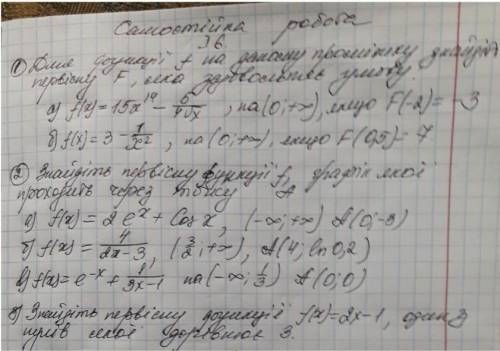 Самостійна робота
36
① Для функції f на даному проміжку знайдіть
первісну F, яка задовольняє умову.
а) f(x) = 15x¹⁴ − 5/(4√x) , на (0;+∞), якщо F(-2) = -3
б) f(x) = 3 − 1/x² , на (0;+∞), якщо F(0,5) = 7
② Знайдіть первісну функції f, графік якої
проходить через точку A
а) f(x) = 2eˣ + Cos x , (-∞;+∞) A(0;-3)
б) f(x) = 4/(2x-3) , (3/2;+∞), A(4; ln 0,2)
в) f(x) = e⁻ˣ + 1/(3x-1) на (-∞; 1/3) A(0;0)
③ Знайдіть первісну функції f(x) = 2x-1, один з
нулів якої дорівнює 3.